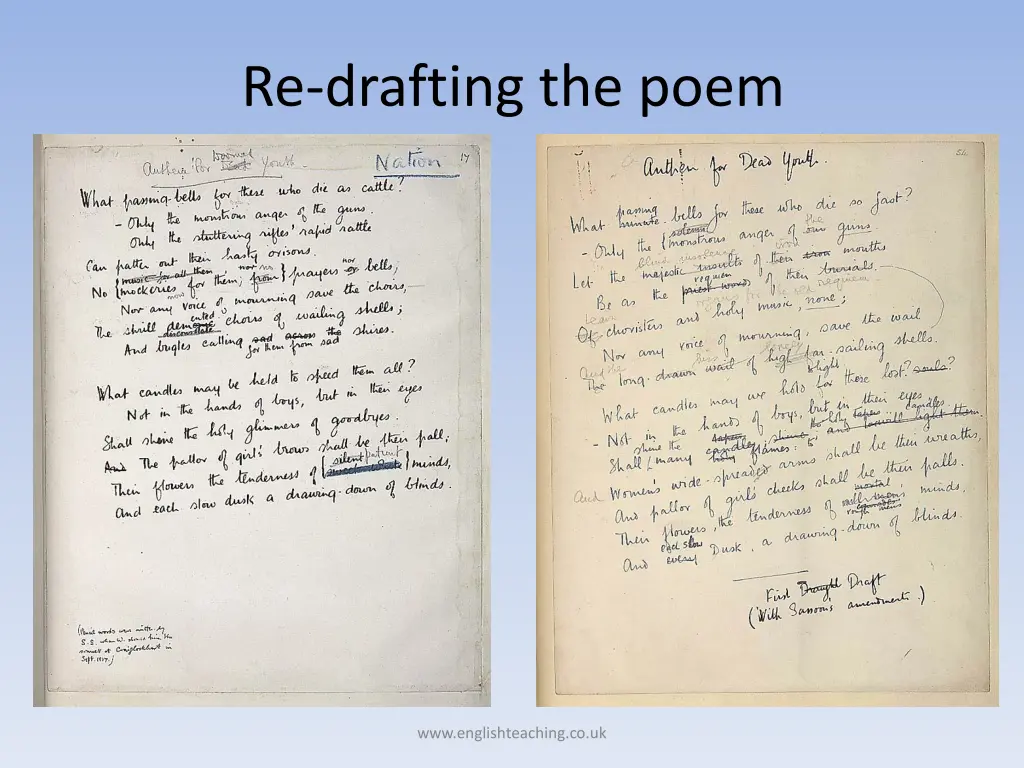 Re-drafting the poem
Anthem for Doomed Dead Youth
Nation
17
What passing-bells for these who die as cattle?
- Only the monstrous anger of the guns.
Only the stuttering rifles' rapid rattle
Can patter out their hasty orisons.
music for all them nor no nor
No mockeries for them; from prayers or bells,
Nor any voice of mourning save the choirs,
ented
The shrill demented choirs of wailing shells;
disconsolate
And bugles calling sad across the shires.
for them from sad
What candles may be held to speed them all?
Not in the hands of boys, but in their eyes
Shall shine the holy glimmers of goodbyes.
And The pallor of girls' brows shall be their pall;
silent patient
Their flowers the tenderness of minds,
And each slow dusk a drawing-down of blinds.
(Pencil words were written by
S.S. when W. showed him the
sonnet at Craiglockhart in
Sept. 1917.)
54
Anthem for Dead Youth.
passing
What minute bells for these who die so fast?
solemn the
- Only the monstrous anger of our guns.
blind insolence
Let the majestic insults of their iron mouths
requiem
Be as the priest words of their burials.
Of choristers and holy music, none;
Nor any voice of mourning, save the wail
hiss lonely
The long-drawn wail of high far-sailing shells.
light
What candles may we hold for these lost? souls?
- Not in the hands of boys, but in their eyes
shine the tapers holy tapers candles.
Shall many candles shine; and will light them.
holy flames: to
And Women's wide-spreaded arms shall be their wreaths,
And pallor of girls' cheeks shall be their palls.
mortal
Their flowers, the tenderness of minds,
rough men's
each slow
And every Dusk, a drawing-down of blinds.
First Draught Draft
(With Sassoon's amendments.)
www.englishteaching.co.uk